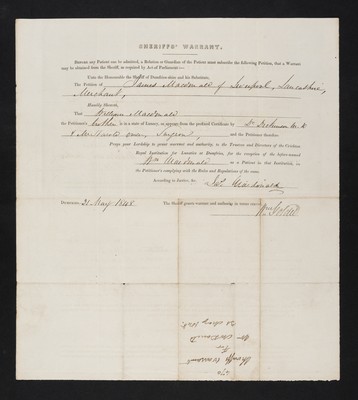 SHERIFFS' WARRANT.
BEFORE any Patient can be admitted, a Relation or Guardian of the Patient must subscribe the following Petition, that a Warrant
may be obtained from the Sheriff, as required by Act of Parliament:—
Unto the Honourable the Sheriff of Dumfries-shire and his Substitutes,
The Petition of James Macdonald of Liverpool, Lancashire,
Merchant,
Humbly Sheweth,
That William Macdonald
the Petitioner's brother is in a state of Lunacy, as appears from the prefixed Certificate by
Surgeons, and the Petitioner therefore
Prays your Lordship to grant warrant and authority to the Trustees and Directors of the Crichton
Royal Institution for Lunatics at Dumfries, for the reception of the before-named
Wm Macdonald as a Patient in that Institution, in
the Petitioner's complying with the Rules and Regulations of the same.
According to Justice, &c. Jas Macdonald
DUMFRIES, 31 May 1848 The Sheriff grants warrant and authority in terms craved.
Sheriffs Warrant
for
Wm McDonald
31 May 1848.